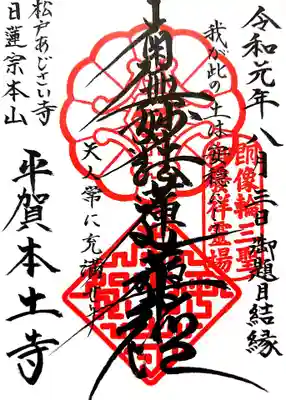 令和元年八月三日 御題目結縁
朗像輪三聖
祥霊場
我が此の土は安穏
南無妙法蓮華経
天人常に充満せり
松戸あじさい寺
日蓮宗本山
平賀本土寺